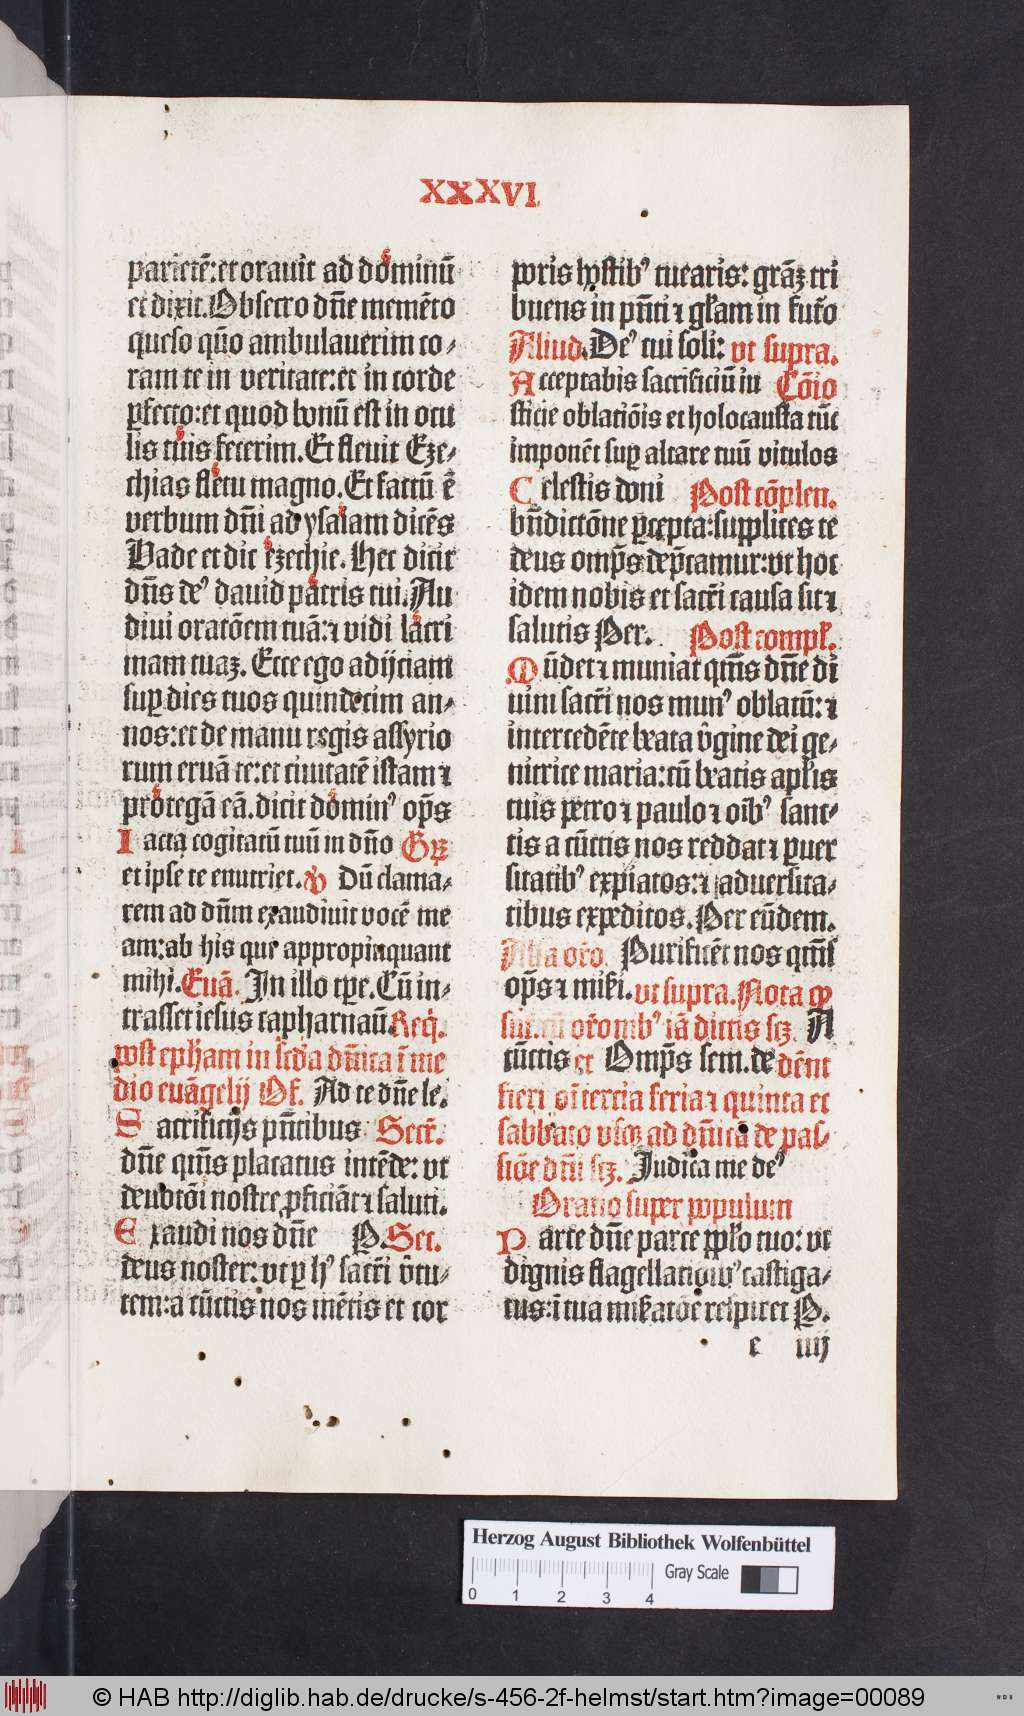 XXXVI
parietē: et orauit ad dominū
et dixit. Obsecro dn̄e memēto
queso qūo ambulauerim co-
ram te in veritate: et in corde
ꝑfecto: et quod bonū est in ocu
lis tuis fecerim. Et fleuit Eze-
chias fletu magno. Et factū ē
verbum dn̄i ad ysaiam dicēs
Vade et dic ezechie. Hec dicit
dn̄s deꝰ dauid patris tui. Au
diui oratōem tuā: ⁊ vidi lacri
mam tuaꝫ. Ecce ego adijciam
suꝑ dies tuos quindecim an-
nos: et de manu regis assyrio
rum eruā te: et ciuitatē istam ⁊
protegā eā. dicit dominꝰ op̄s
Iacta cogitatū tuū in dn̄o Gꝝ
et ipse te enutriet. ℣ Dū clama-
rem ad dn̄m exaudiuit vocē me
am: ab his qui appropinquant
mihi. Euā. In illo tꝑe. Cū in-
trasset iesus capharnaū. Req̄.
post eph̄am in scd̄a dn̄ica ī me
dio euāgelij Of. Ad te dn̄e le.
Sacrificijs pn̄tibus Secr̄.
dn̄e qm̄s placatus intēde: vt
deuotōi nostre ꝓficiāt ⁊ saluti.
Exaudi nos dn̄e P. Sec.
deus noster: vt ꝑ hꝰ sacr̄i v̄tu-
tem: a cūctis nos mētis et cor
poris hostibꝰ tuearis: grāꝫ tri
buens in pn̄ti ⁊ gl̄am in futr̄o
Aliud. Deꝰ tui soli: vt supra.
Acceptabis sacrificiū iu Cōio
sticie oblatiōis et holocausta tūc
imponēt suꝑ altare tuū vitulos
Celestis doni Post cōplen.
bn̄dictōne ꝑcepta: supplices te
deus omp̄s dep̄camur: vt hoc
idem nobis et sacr̄i causa sit ⁊
salutis Per. Post compl̄.
Mūdet ⁊ muniat qm̄s dn̄e di
uini sacr̄i nos munꝰ oblatū: ⁊
intercedēte beata v̄gine dei ge-
nitrice maria: cū beatis apl̄is
tuis petro ⁊ paulo ⁊ oībꝰ sanc-
tis a cūctis nos reddat ⁊ ꝑuer
sitatibꝰ expiatos: ⁊ aduersita-
tibus expeditos. Per eūdem.
Alia or̄o. Purificēt nos qm̄s
op̄s ⁊ mis̄i. vt supra. Nota ꝙ
cū or̄onibꝰ iā dictis scꝫ. A
cūctis et Omp̄s sem. de dēnt
fieri oī tercia feria ⁊ quinta et
sabbato vsqꝫ ad dn̄icā de pas-
siōe dn̄i scꝫ. Judica me deꝰ
Oratio super populum
Parce dn̄e parce ppl̄o tuo: vt
dignis flagellationibꝰ castiga-
tus: ī tua mis̄eratōe respiret P.
e iiij
Herzog August Bibliothek Wolfenbüttel
0 1 2 3 4
Gray Scale
© HAB http://diglib.hab.de/drucke/s-456-2f-helmst/start.htm?image=00089
WDB